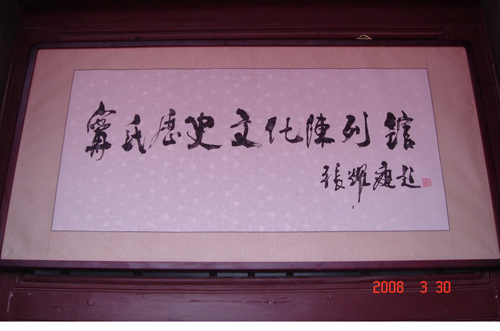 氏歷史文化陳列館
張耀庭題
2008 3 30